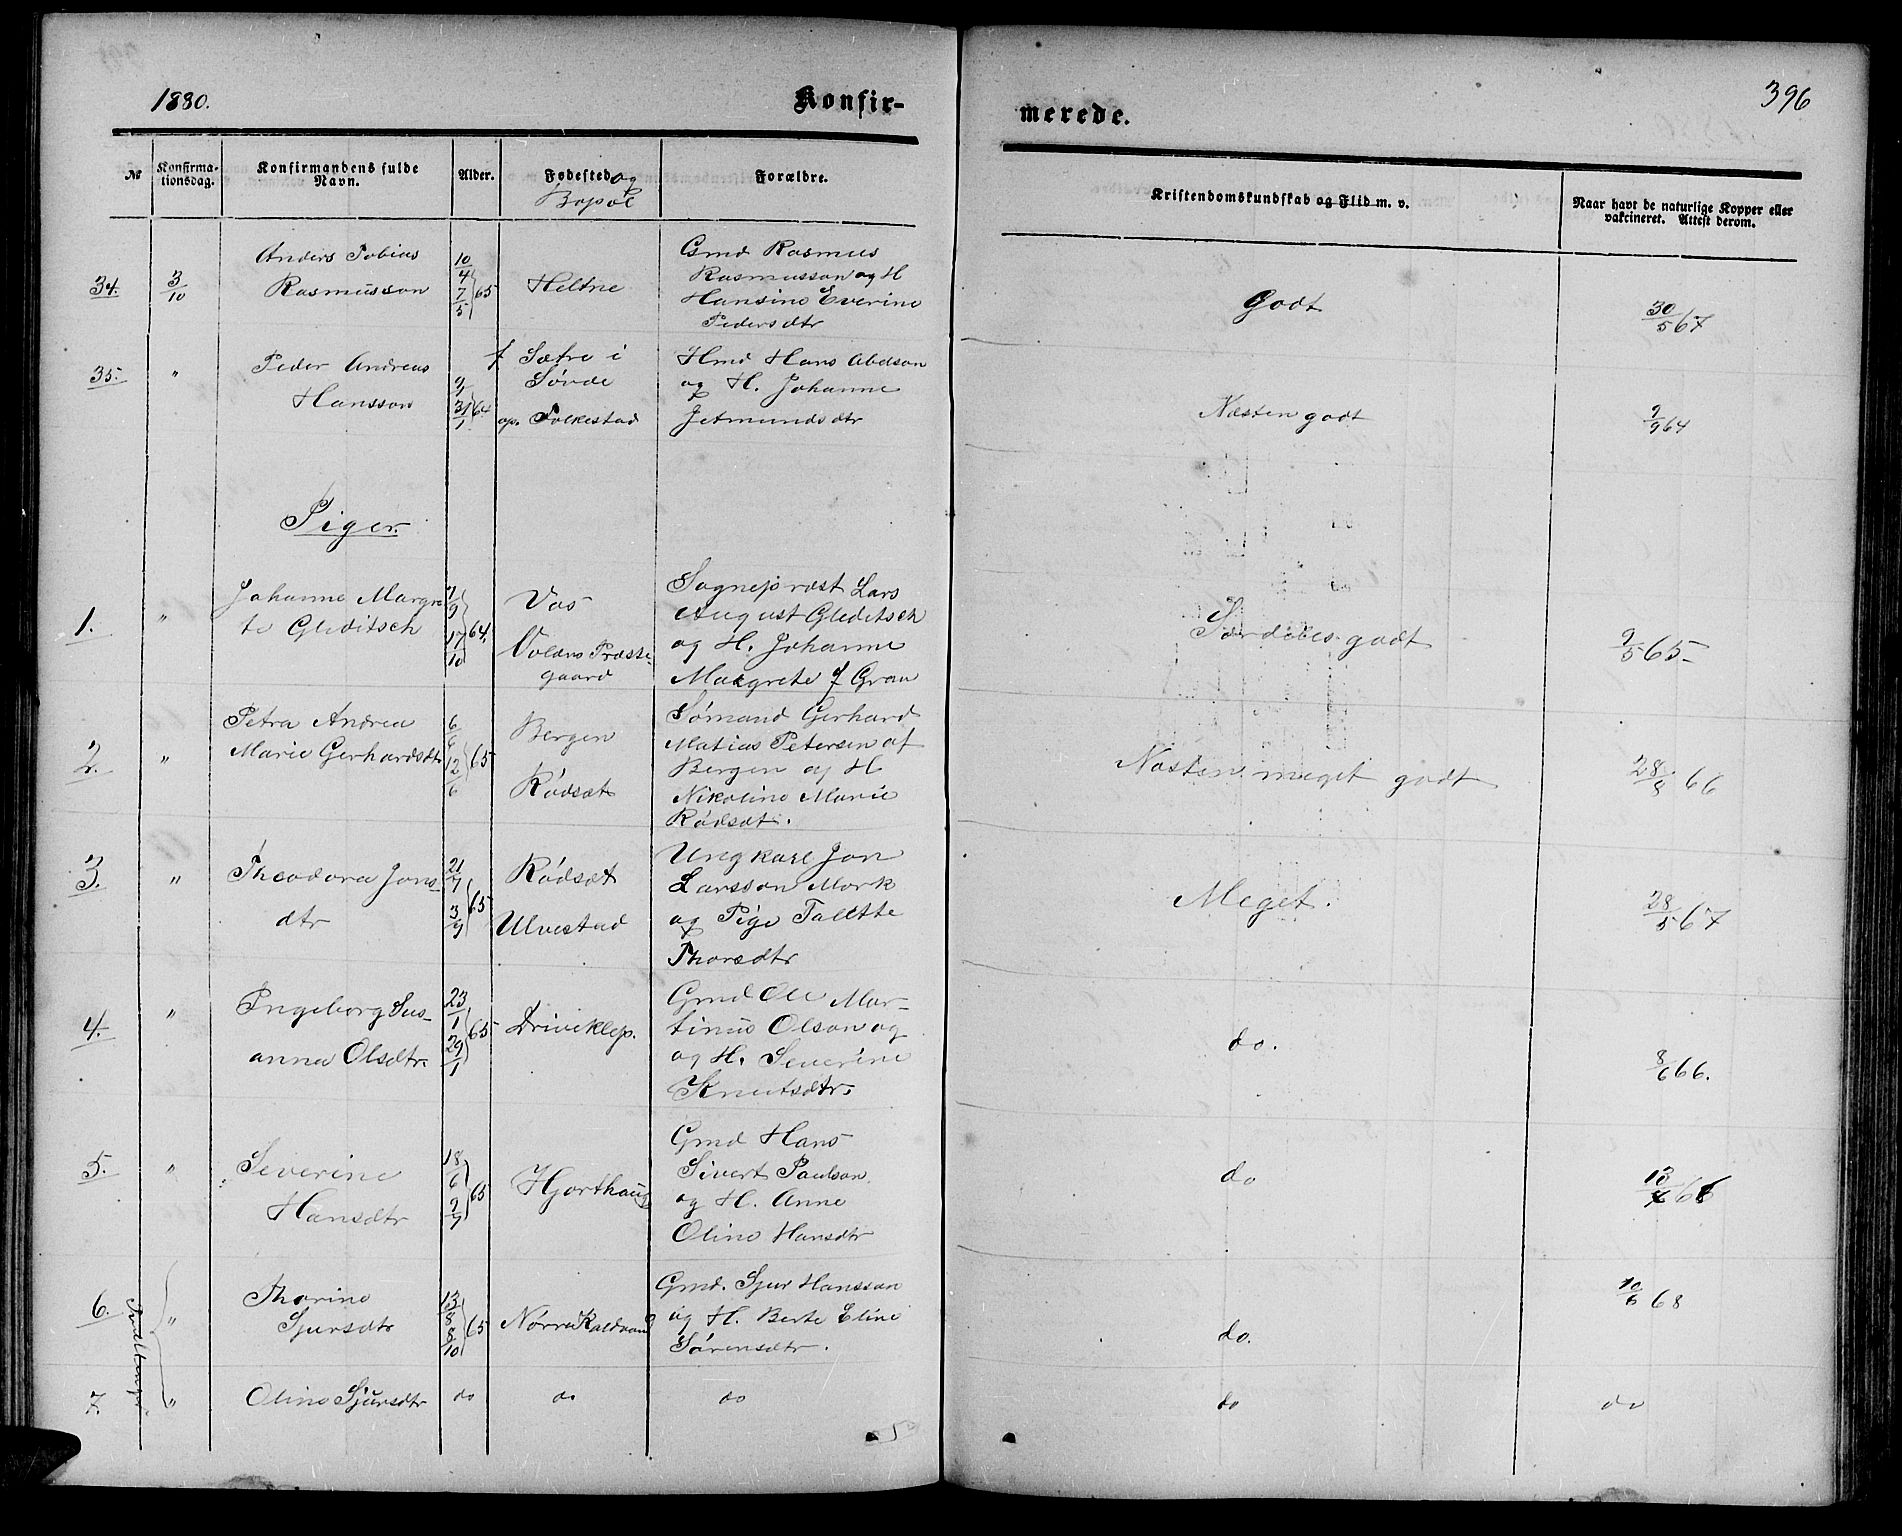 1880.
Konfir-
merede.
396
№
Konfirma-
tionsdag.
Konfirmandens fulde
Navn.
Alder.
Fødested og
Bopæl
Forældre.
Kristendomskundskab og Flid m. v.
Naar havt de naturlige Kopper eller
vakcineret. Attest derom.
34. 3/10 Anders Tobias
Rasmusson
10/4 7/5 65
Heltne
Gmd Rasmus
Rasmusson og H
Hansine Everine
Pedersdtr
Godt
30/5 67
35. " Peder Andreas
Hansson
9/1 31/1 64
f Sætre i
Sövde
op. Folkestad
Hmd Hans Abelson
og H. Johanne
Jetmundsdtr
Næsten godt
9/9 64
Piger.
1. " Johanne Margre
te Gleditsch
7/9 17/10 64.
Vos
Voldens Præste-
gaard
Sognepræst Lars
August Gleditsch
og H. Johanne
Margrete f Gran
Særdeles godt
9/5 65
2. " Petra Andrea
Marie Gerhardsdtr
6/6 12/6 65
Bergen
Rödsæt
Sömand Gerhard
Matias Petersen af
Bergen og H
Nikoline Marie
Rödsæt.
Næsten meget godt
28/8 66
3. " Theodora Jons-
dtr
21/7 3/9 65
Rödsæt
Ulvestad
Ungkarl Jon
Larsson Mork
og Pige Talette
Thorsdtr
Meget.
28/5 67
4. " Ingeborg Sus-
anna Olsdtr.
23/1 29/1 65
Driveklep.
Gmd Ole Mar-
tinus Olson og
og H. Severine
Knutsdtr.
do.
8/6 66.
5. " Severine
Hansdtr
18/6 9/7 65
Hjorthaug
Gmd Hans
Sivert Paulson
og H. Anne
Oline Hansdtr
do
13/6 66
6. " Thorine
Sjursdtr
13/8 8/10 65
Nörre Kaldvatn
Gmd. Sjur Hansson
og H. Berte Eline
Sörensdtr.
do.
10/6 68
7. " Oline Sjursdtr
do
do
do
do
do